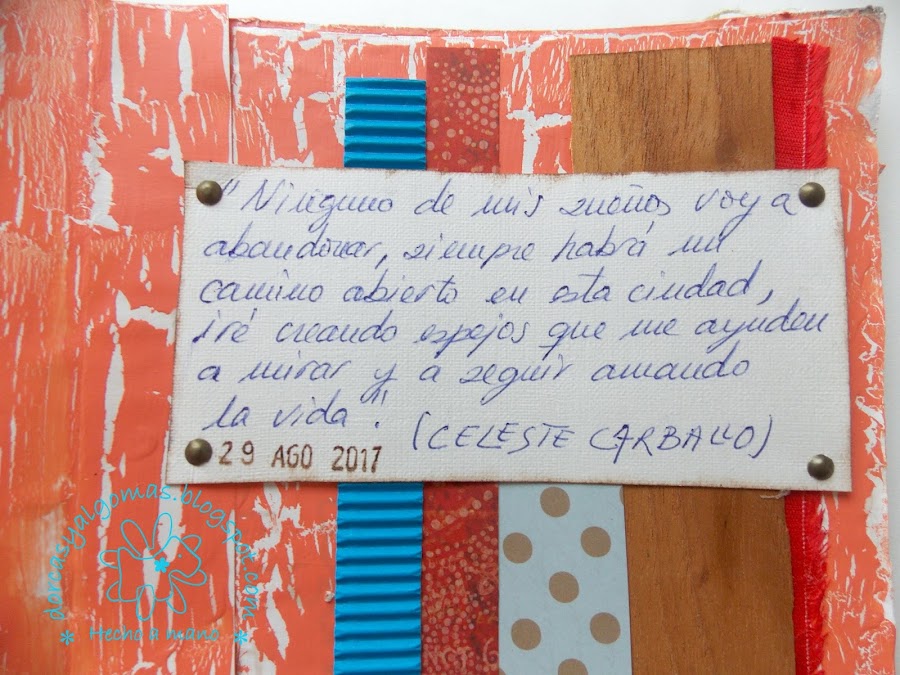 "Ninguno de mis sueños voy a
abandonar, siempre habrá un
camino abierto en esta ciudad,
iré creando espejos que me ayuden
a mirar y a seguir amando
la vida".
(CELESTE CARBALLO)
29 AGO 2017
dorcasyalgomas.blogspot.com
* Hecho a mano *